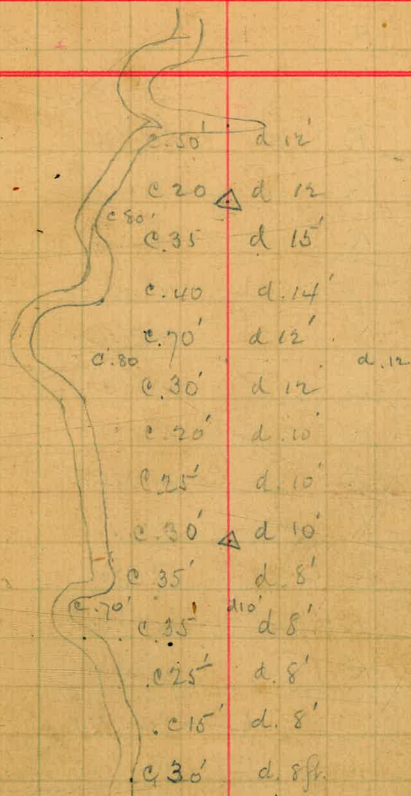 c.50' d 12'
c 20 d 12
c 80'
c.35 d 15'
c.40 d.14'
c.70' d 12'
c.80 d.12
c.30' d 12
c.20' d.10'
c.25' d.10'
c.30' d 10'
c 35' d.8'
c.70' d10'
c.35 d 8'
.c25' d.8'
.c15' d.8'
.c,30' d.8ft.